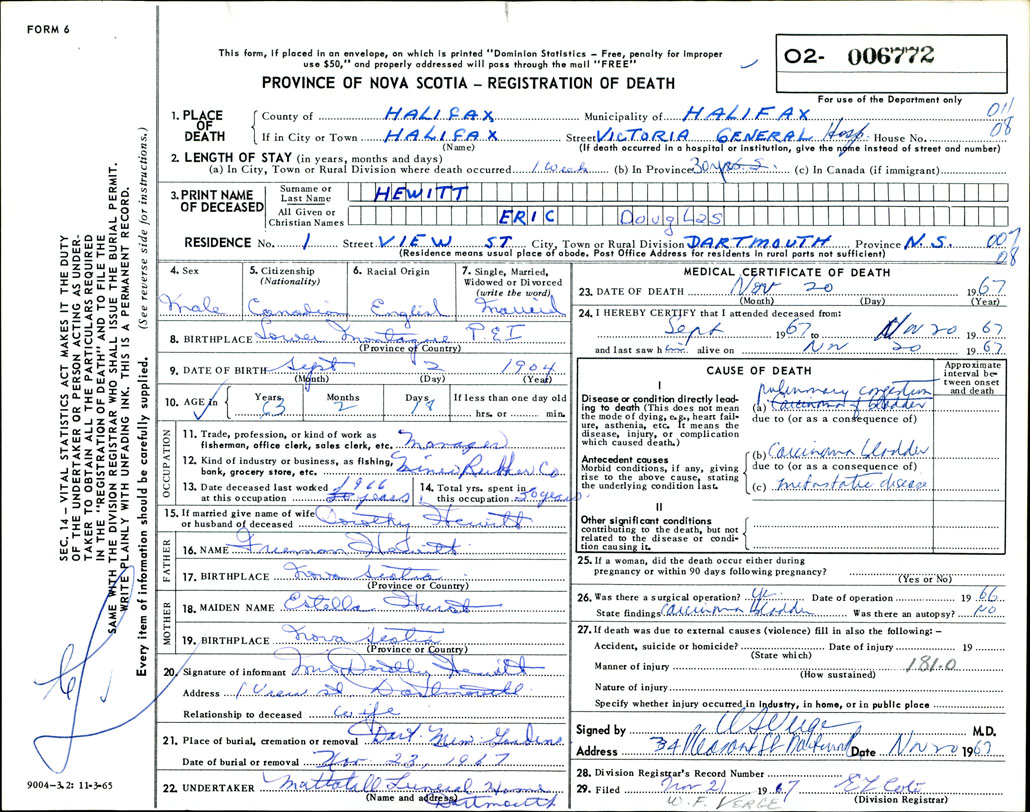 FORM 6
This form, if placed in an envelope, on which is printed "Dominion Statistics – Free, penalty for improper
use $50," and properly addressed will pass through the mail "FREE"
PROVINCE OF NOVA SCOTIA – REGISTRATION OF DEATH
O2- 006772
For use of the Department only
011
08
1. PLACE OF DEATH
County of HALIFAX Municipality of HALIFAX
If in City or Town HALIFAX Street VICTORIA GENERAL Hosp. House No.
(Name) (If death occurred in a hospital or institution, give the name instead of street and number)
2. LENGTH OF STAY (in years, months and days)
(a) In City, Town or Rural Division where death occurred 1 Week (b) In Province 30 yrs (c) In Canada (if immigrant)
3. PRINT NAME OF DECEASED
Surname or Last Name HEWITT
All Given or Christian Names ERIC Douglas
RESIDENCE No. 1 Street VIEW ST City, Town or Rural Division DARTMOUTH Province N.S. 007
08
(Residence means usual place of abode. Post Office Address for residents in rural parts not sufficient)
4. Sex Male
5. Citizenship (Nationality) Canadian
6. Racial Origin English
7. Single, Married, Widowed or Divorced (write the word) Married
8. BIRTHPLACE Lower Montague P.E.I
(Province or Country)
9. DATE OF BIRTH Sept 2 1904
(Month) (Day) (Year)
10. AGE in Years 63 Months 2 Days 18 If less than one day old
hrs. or min.
OCCUPATION
11. Trade, profession, or kind of work as
fisherman, office clerk, sales clerk, etc. Manager
12. Kind of industry or business, as fishing,
bank, grocery store, etc. Miner Rubber Co
13. Date deceased last worked
at this occupation 1966
14. Total yrs. spent in
this occupation 30 years
15. If married give name of wife
or husband of deceased Dorothy Hewitt
FATHER
16. NAME Freeman Hewitt
17. BIRTHPLACE Nova Scotia
(Province or Country)
MOTHER
18. MAIDEN NAME Estella
19. BIRTHPLACE Nova Scotia
(Province or Country)
20. Signature of informant Mrs Dorothy Hewitt
Address 1 View St Dartmouth
Relationship to deceased wife
21. Place of burial, cremation or removal Dart. Mem. Gardens
Date of burial or removal Nov. 23, 1967
22. UNDERTAKER Mattatall Funeral Home
(Name and address) Dartmouth
MEDICAL CERTIFICATE OF DEATH
23. DATE OF DEATH Nov 20 1967
(Month) (Day) (Year)
24. I HEREBY CERTIFY that I attended deceased from:
Sept 1967 to Nov 20 1967
and last saw him alive on Nov 20 1967
CAUSE OF DEATH
Approximate interval between onset and death
I
Disease or condition directly leading to death (This does not mean the mode of dying, e.g., heart failure, asthenia, etc. It means the disease, injury, or complication which caused death.)
pulmonary congestion
(a) Carcinoma of bladder
due to (or as a consequence of)
Antecedent causes
Morbid conditions, if any, giving rise to the above cause, stating the underlying condition last.
(b) Carcinoma bladder
due to (or as a consequence of)
(c) metastatic disease
II
Other significant conditions
contributing to the death, but not related to the disease or condition causing it.
25. If a woman, did the death occur either during
pregnancy or within 90 days following pregnancy?
(Yes or No)
26. Was there a surgical operation? yes Date of operation 1966
State findings Carcinoma bladder Was there an autopsy? No
27. If death was due to external causes (violence) fill in also the following: –
Accident, suicide or homicide? Date of injury 19
(State which)
Manner of injury 181.0
(How sustained)
Nature of injury
Specify whether injury occurred in industry, in home, or in public place
Signed by M.D.
Address 34 Pleasant St Date Nov 20 1967
28. Division Registrar's Record Number
29. Filed Nov 21 1967
W. F. VERGE (Division Registrar)
SEC. 14 – VITAL STATISTICS ACT MAKES IT THE DUTY
OF THE UNDERTAKER OR PERSON ACTING AS UNDER-
TAKER TO OBTAIN ALL THE PARTICULARS REQUIRED
IN THE "REGISTRATION OF DEATH" AND TO FILE THE
SAME WITH THE DIVISION REGISTRAR WHO SHALL ISSUE THE BURIAL PERMIT.
WRITE PLAINLY WITH UNFADING INK. THIS IS A PERMANENT RECORD.
Every item of information should be carefully supplied. (See reverse side for instructions.)
9004–3.2: 11-3-65